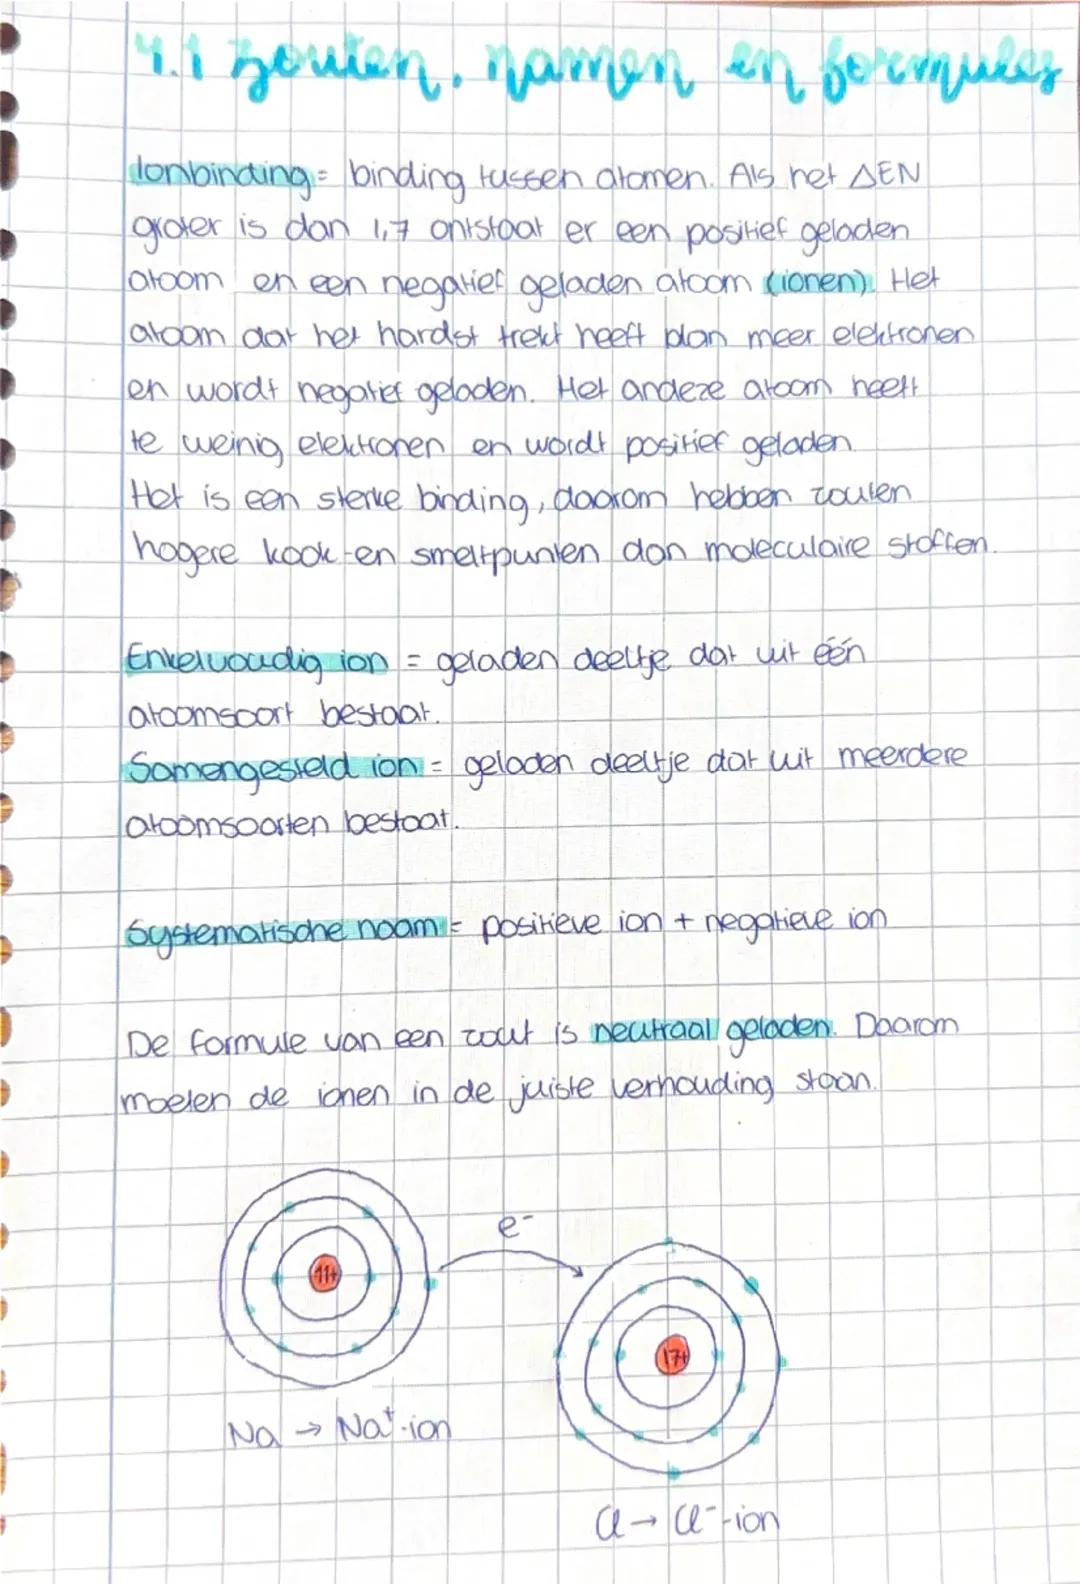 4.1 zouten, namen en formules
Ionbinding = binding tussen atomen. Als het ΔEN
groter is dan 1,7 ontstaat er een positief geladen
atoom en een negatief geladen atoom (ionen). Het
atoom dat het hardst trekt heeft dan meer elektronen
en wordt negatief geladen. Het andere atoom heeft
te weinig elektronen en wordt positief geladen.
Het is een sterke binding, daarom hebben zouten
hogere kook-en smeltpunten dan moleculaire stoffen.
Enkelvoudig ion = geladen deeltje dat uit één
atoomsoort bestaat.
Samengesteld ion = geladen deeltje dat uit meerdere
atoomsoorten bestaat.
Systematische naam = positieve ion + negatieve ion
De formule van een zout is neutraal geladen. Daarom
moeten de ionen in de juiste verhouding staan.
e⁻
11+
17+
Na → Na⁺-ion
Cl → Cl⁻-ion